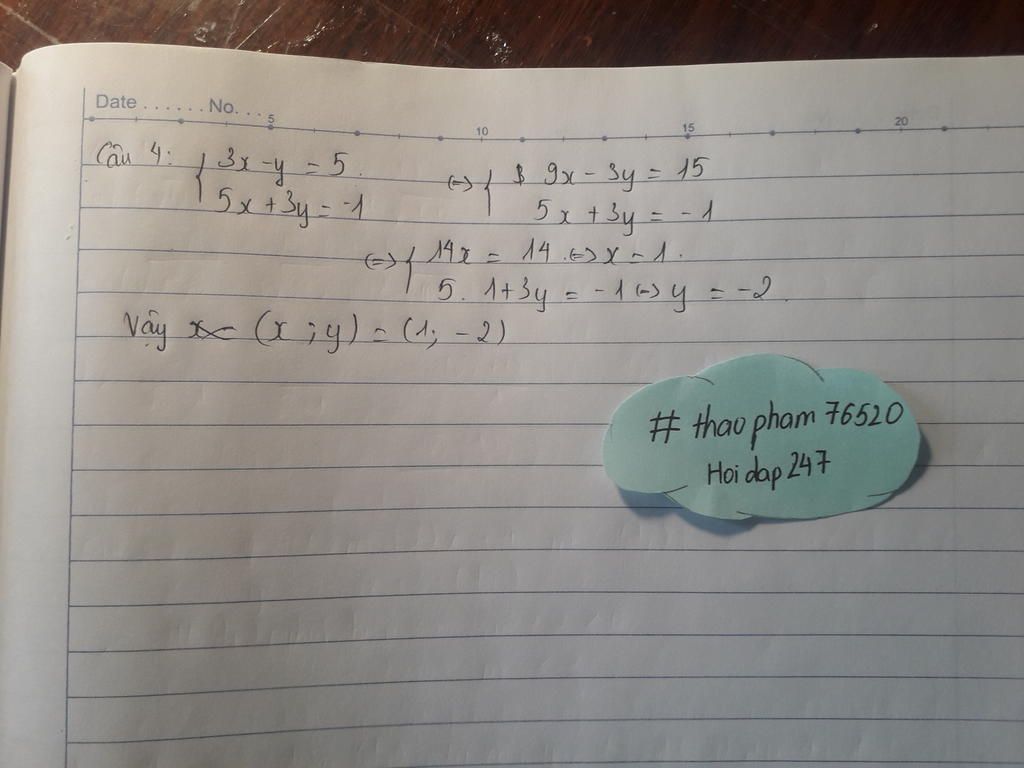 Date ...... No. ...
5 10 15 20
Câu 4: { 3x - y = 5. <=> { 9x - 3y = 15
5x + 3y = -1 5x + 3y = -1
<=> { 14x = 14 <=> x = 1.
5. 1 + 3y = -1 <=> y = -2.
Vậy (x ; y) = (1; -2)
# thao pham 76520
Hoi dap 247